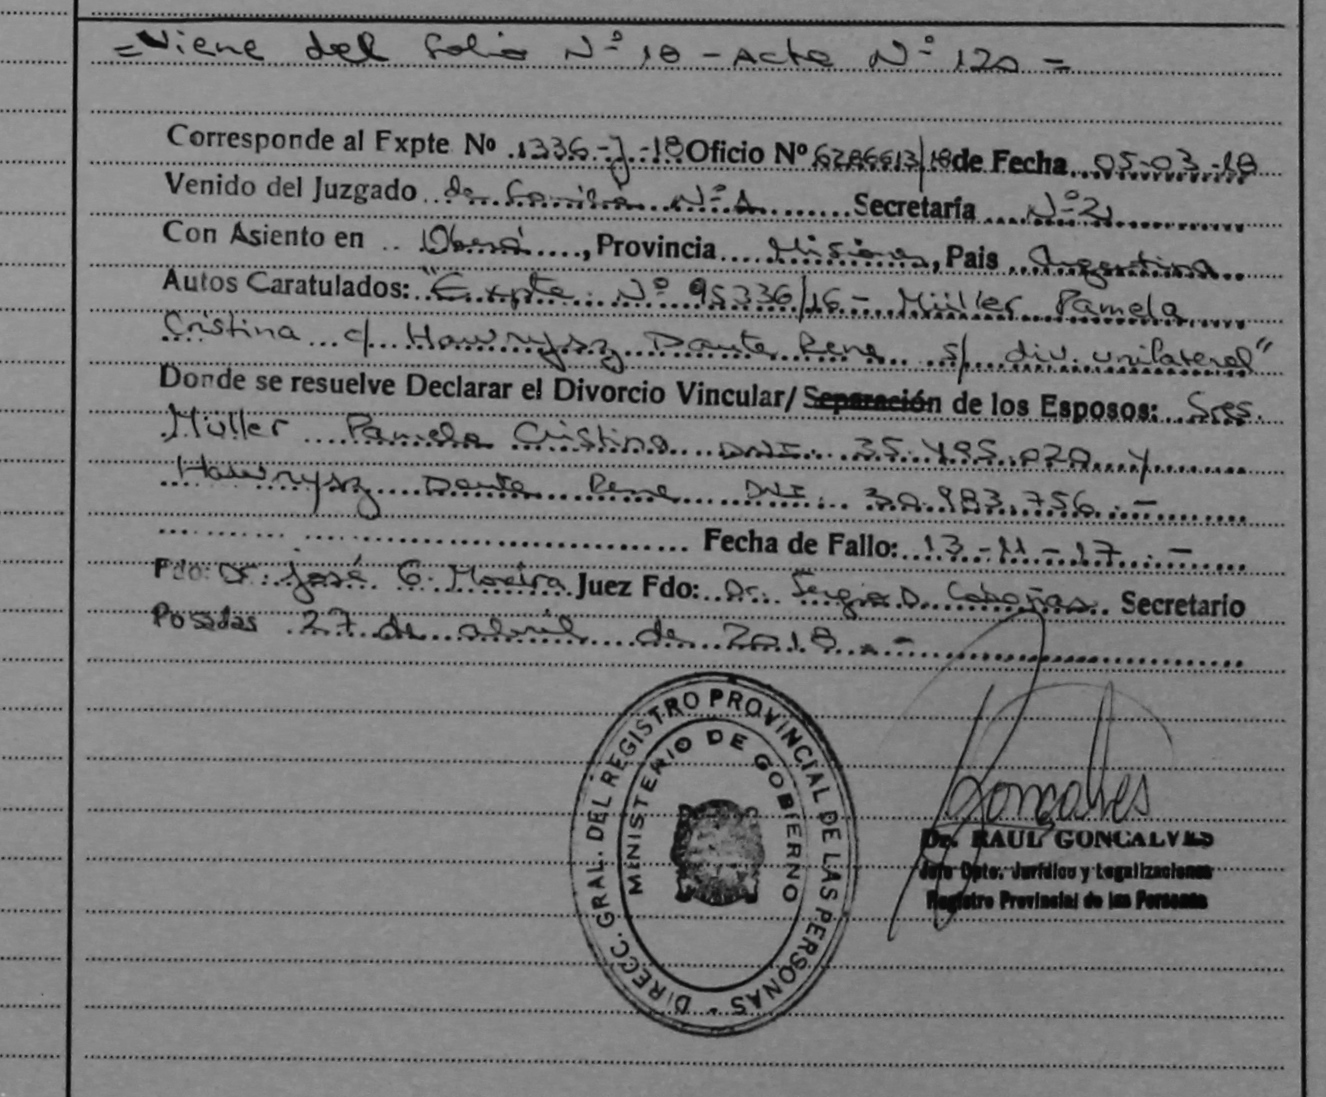 =Viene del folio Nº 18 - Acta Nº 120 =
Corresponde al Expte Nº 1336-J-18 Oficio Nº 6286613/18 de Fecha 05-03-18
Venido del Juzgado de Familia Nº 1 Secretaría Nº 2
Con Asiento en Oberá, Provincia Misiones, Pais Argentina
Autos Caratulados: "Expte. Nº 95336/16 - Müller Pamela
Cristina c/ Hawrysz Dante Rene s/ div. unilateral"
Donde se resuelve Declarar el Divorcio Vincular/ Separación de los Esposos: Sres.
Müller Pamela Cristina DNI. 35.495.020 y
Hawrysz Dante Rene DNI. 30.983.756.-
Fecha de Fallo: 13-11-17.-
Fdo: Dr. José G. Moreira Juez Fdo: Dr. Sergio D. Secretario
Posadas 27 de abril de 2018.-
DIRECC. GRAL. DEL REGISTRO PROVINCIAL DE LAS PERSONAS -
MINISTERIO DE GOBIERNO
Gonçalves
Dr. RAUL GONCALVES
Jefe Dpto. Jurídico y Legalizaciones
Registro Provincial de las Personas